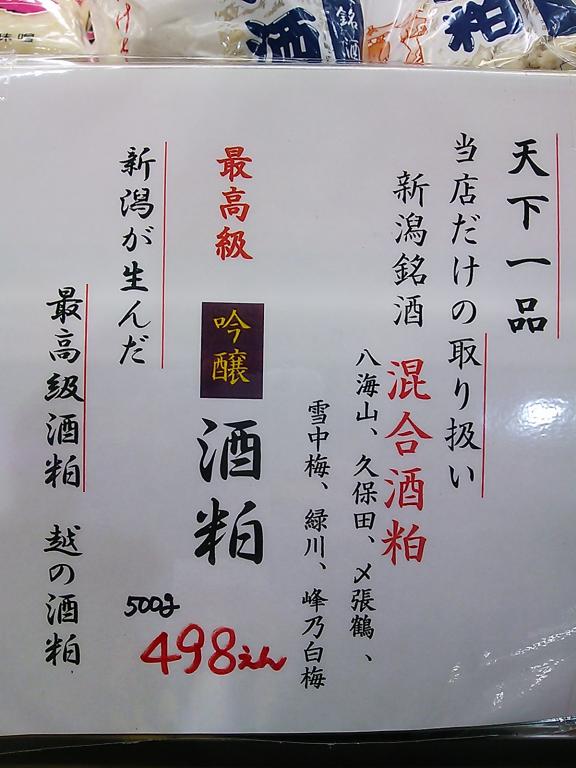 天下一品
当店だけの取り扱い
新潟銘酒 混合酒粕
八海山、久保田、〆張鶴、
雪中梅、緑川、峰乃白梅
最高級 吟醸 酒粕
500g
498えん
新潟が生んだ
最高級酒粕 越の酒粕
味噌
酒
銘酒
粕